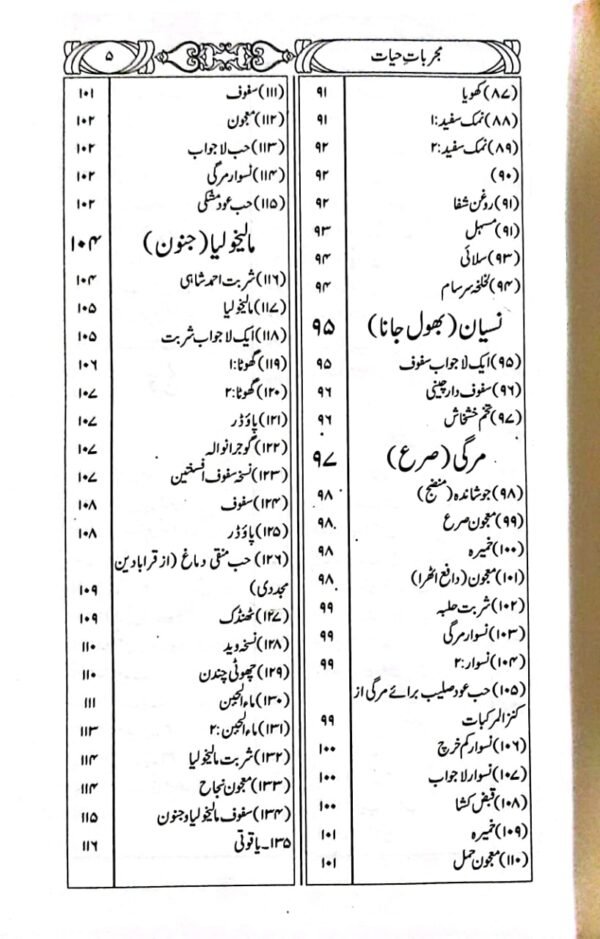 مجربات حیات
۵
(۸۷) کھویا ۹۱
(۸۸) نمک سفید: ۱ ۹۱
(۸۹) نمک سفید: ۲ ۹۲
(۹۰) ۹۲
(۹۱) روغن شفا ۹۲
(۹۱) مسہل ۹۳
(۹۳) سلائی ۹۴
(۹۴) لخلخہ سرسام ۹۴
نسیان (بھول جانا) ۹۵
(۹۵) ایک لاجواب سفوف ۹۵
(۹۶) سفوف دارچینی ۹۶
(۹۷) تخم خشخاش ۹۶
مرگی (صرع) ۹۷
(۹۸) جوشاندہ (منضج) ۹۸
(۹۹) معجون صرع ۹۸
(۱۰۰) خمیرہ ۹۸
(۱۰۱) معجون (دافع اٹھرا) ۹۸
(۱۰۲) شربت حلبہ ۹۹
(۱۰۳) نسوار مرگی ۹۹
(۱۰۴) نسوار: ۲ ۹۹
(۱۰۵) حب عود صلیب برائے مرگی از
کنز المرکبات ۹۹
(۱۰۶) نسوار کم خرچ ۱۰۰
(۱۰۷) نسوار لاجواب ۱۰۰
(۱۰۸) قبض کشا ۱۰۰
(۱۰۹) خمیرہ ۱۰۱
(۱۱۰) معجون حمل ۱۰۱
(۱۱۱) سفوف ۱۰۱
(۱۱۲) معجون ۱۰۲
(۱۱۳) حب لاجواب ۱۰۲
(۱۱۴) نسوار مرگی ۱۰۲
(۱۱۵) حب عود مشکی ۱۰۲
مالیخولیا (جنون) ۱۰۴
(۱۱۶) شربت احمد شاہی ۱۰۴
(۱۱۷) مالیخولیا ۱۰۵
(۱۱۸) ایک لاجواب شربت ۱۰۵
(۱۱۹) گھوٹا: ۱ ۱۰۶
(۱۲۰) گھوٹا: ۲ ۱۰۷
(۱۲۱) پاؤڈر ۱۰۷
(۱۲۲) گوجرانوالہ ۱۰۷
(۱۲۳) نسخہ سفوف افسنتین ۱۰۷
(۱۲۴) سفوف ۱۰۸
(۱۲۵) پاؤڈر ۱۰۸
(۱۲۶) حب منقی دماغ (از قرابادین
مجددی) ۱۰۹
(۱۲۷) ٹھنڈک ۱۰۹
(۱۲۸) نسخہ وید ۱۱۰
(۱۲۹) چھوٹی چندن ۱۱۰
(۱۳۰) ماء الجبن ۱۱۱
(۱۳۱) ماء الجبن: ۲ ۱۱۳
(۱۳۲) شربت مالیخولیا ۱۱۴
(۱۳۳) معجون نجاح ۱۱۴
(۱۳۴) سفوف مالیخولیا و جنون ۱۱۵
۱۳۵۔ یاقوتی ۱۱۶